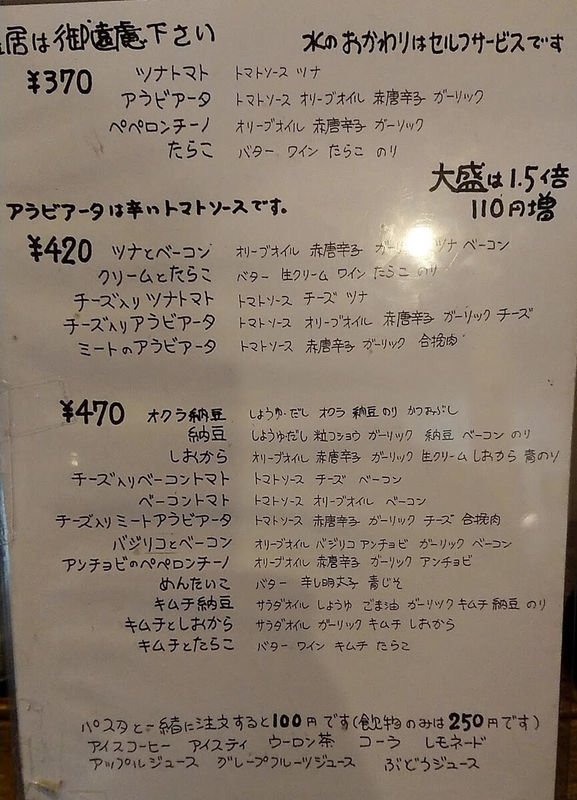 居は御遠庵下さい
水のおかわりはセルフサービスです
¥370 ツナトマト トマトソース ツナ
アラビアータ トマトソース オリーブオイル 赤唐辛子 ガーリック
ペペロンチーノ オリーブオイル 赤唐辛子 ガーリック
たらこ バター ワイン たらこ のり
大盛は1.5倍
110円増
アラビアータは辛いトマトソースです。
¥420 ツナとベーコン オリーブオイル 赤唐辛子 ガーリック ツナ ベーコン
クリームとたらこ バター 生クリーム ワイン たらこ のり
チーズ入りツナトマト トマトソース チーズ ツナ
チーズ入りアラビアータ トマトソース オリーブオイル 赤唐辛子 ガーリック チーズ
ミートのアラビアータ トマトソース 赤唐辛子 ガーリック 合挽肉
¥470 オクラ納豆 しょうゆ・だし オクラ 納豆 のり かつおぶし
納豆 しょうゆ・だし 粒コショウ ガーリック 納豆 ベーコン のり
しおから オリーブオイル 赤唐辛子 ガーリック 生クリーム しおから 青のり
チーズ入りベーコントマト トマトソース チーズ ベーコン
ベーコントマト トマトソース オリーブオイル ベーコン
チーズ入りミートアラビアータ トマトソース 赤唐辛子 ガーリック チーズ 合挽肉
バジリコとベーコン オリーブオイル バジリコ アンチョビ ガーリック ベーコン
アンチョビのペペロンチーノ オリーブオイル 赤唐辛子 ガーリック アンチョビ
めんたいこ バター 辛し明太子 青じそ
キムチ納豆 サラダオイル しょうゆ ごま油 ガーリック キムチ 納豆 のり
キムチとしおから サラダオイル ガーリック キムチ しおから
キムチとたらこ バター ワイン キムチ たらこ
パスタと一緒に注文すると100円です(飲物のみは250円です)
アイスコーヒー アイスティ ウーロン茶 コーラ レモネード
アップルジュース グレープフルーツジュース ぶどうジュース